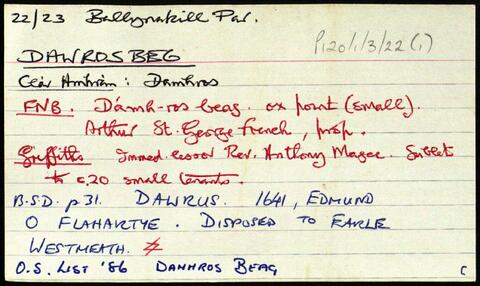 22/23 Ballynakill Par.
P120/1/3/22 (1)
DAWROSBEG
Clár Amhráin: Damhros
FNB. Dámh-ros beag. ox point (small).
Arthur St. George French, prop.
Griffiths Immed. lessor Rev. Anthony Magee. Sublet
to c.20 small tenants.
B.S.D. p 31. DAWRUS. 1641, EDMUND
O FLAHARTYE. DISPOSED TO EARLE
WESTMEATH.
O.S. LIST '86 DAMHROS BEAG
C